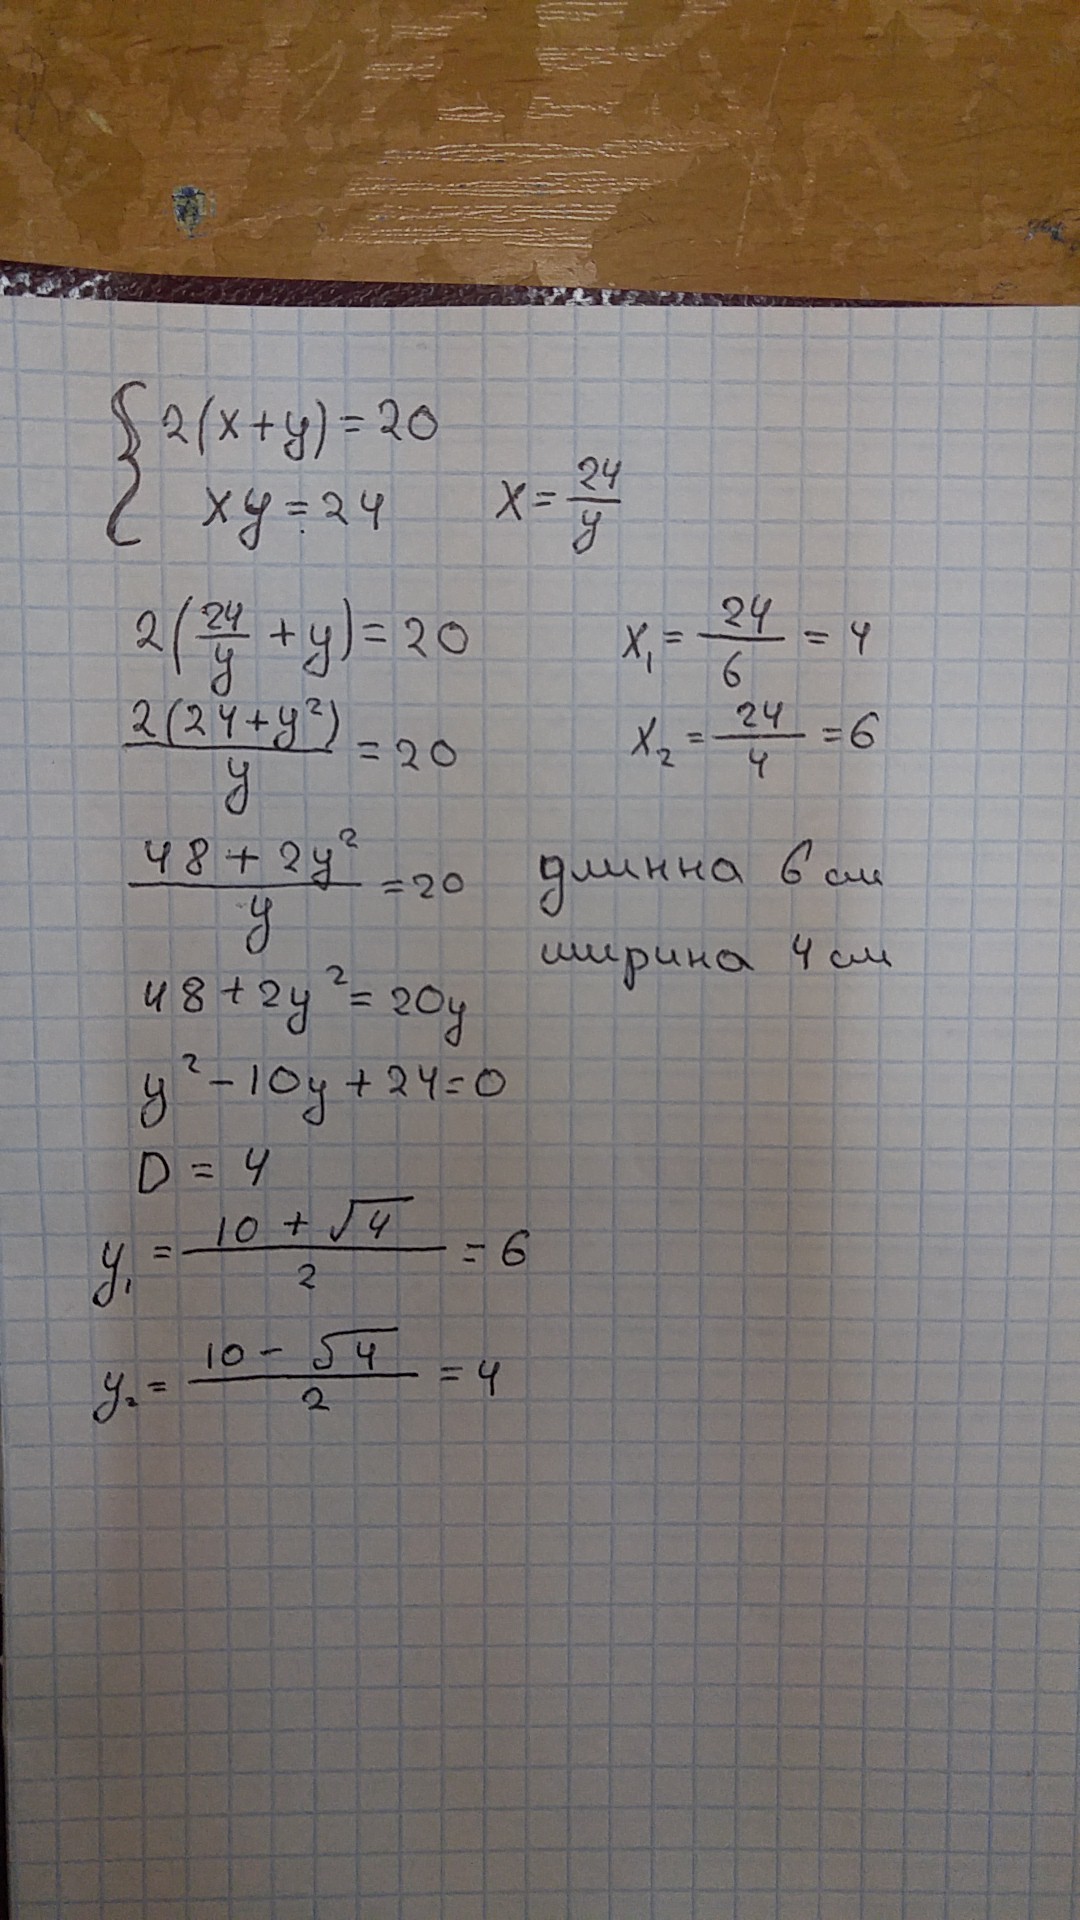 2(x+y)=20
xy=24
x=24/y
2(24/y+y)=20
2(24+y²)/y=20
(48+2y²)/y=20
48+2y²=20y
y²-10y+24=0
D=4
y₁=(10+√4)/2=6
y₂=(10-√4)/2=4
x₁=24/6=4
x₂=24/4=6
длинна 6 см
ширина 4 см